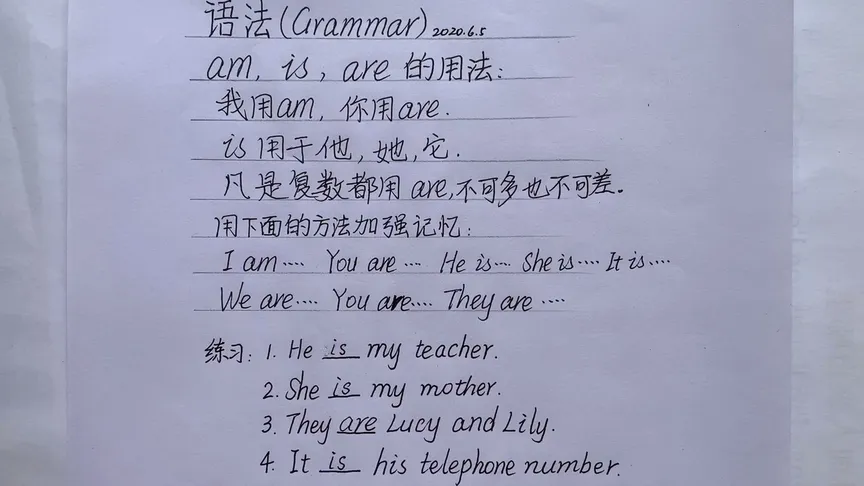 语法(Grammar) 2020.6.5
am, is, are 的用法:
我用am, 你用are.
is 用于他,她,它.
凡是复数都用 are,不可多也不可差。
用下面的方法加强记忆:
I am···· You are ···· He is···· She is···· It is····
We are···· You are···· They are ····
练习: 1. He is my teacher.
2. She is my mother.
3. They are Lucy and Lily.
4. It is his telephone number.